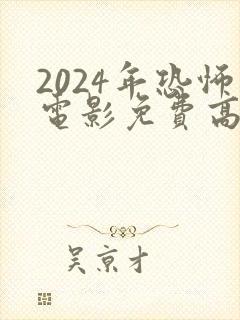 2024年恐怖
电影免費高
吴京才